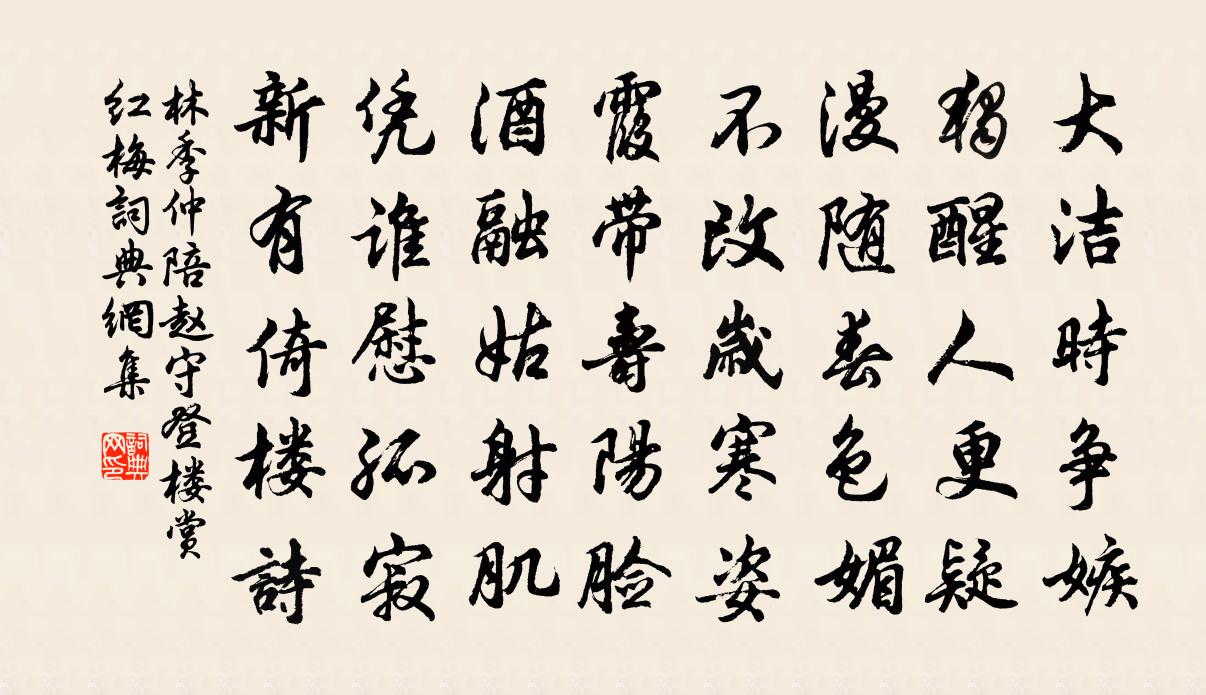 大洁時争嫉
獨醒人更疑
漫随春色媚
不改歳寒姿
霞带壽陽脸
酒融姑射肌
凭谁慰孤寂
新有倚楼詩
林季仲陪赵守登楼赏
红梅詞典網集
詞典网印